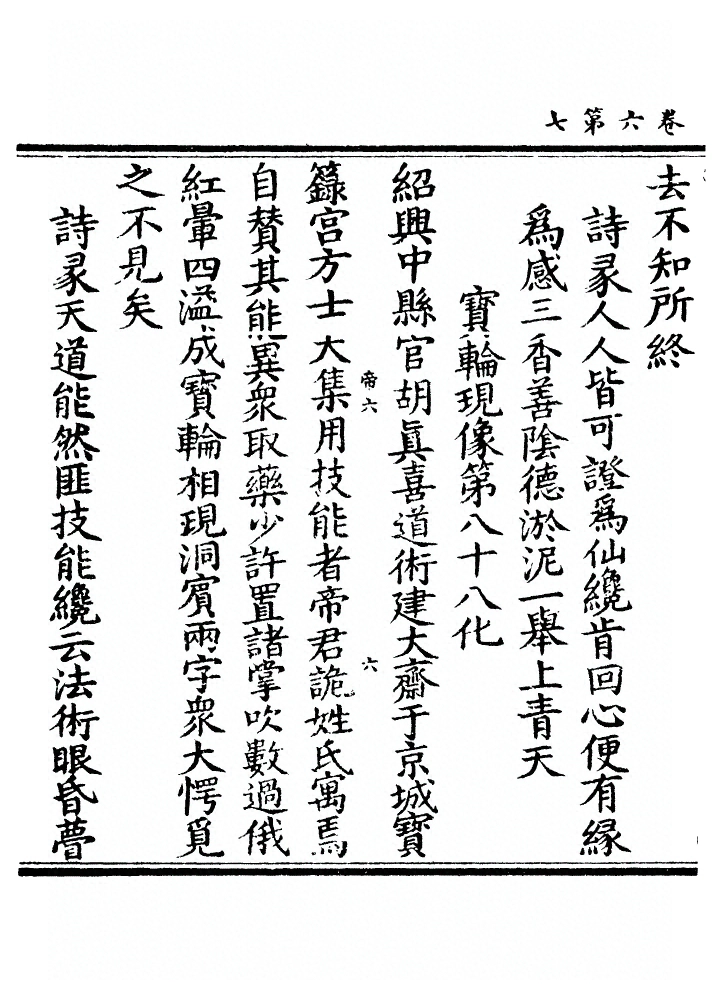 卷六第七
去不知所終
詩彖人人皆可證爲仙纔肯回心便有縁
爲感三香善陰德淤泥一舉上青天
寶輪現像第八十八化
紹興中縣官胡眞喜道術建大齋于京城寶
帝六
六
籙宫方士大集用技能者帝君詭姓氏寓焉
自賛其能異衆取藥少許置諸掌吹數過俄
紅暈四溢成寶輪相現洞賓兩字衆大愕覓
之不見矣
詩彖天道能然匪技能纔云法術眼昏瞢